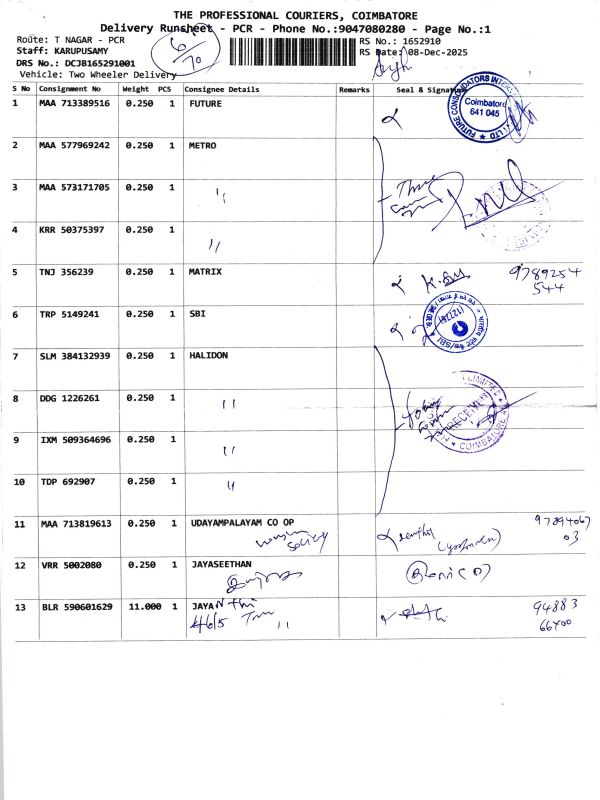 THE PROFESSIONAL COURIERS, COIMBATORE
Delivery Runsheet - PCR - Phone No.:9047080280 - Page No.:1
Route: T NAGAR - PCR
RS No.: 1652910
Staff: KARUPUSAMY
RS Date: 08-Dec-2025
DRS No.: DCJB165291001
Vehicle: Two Wheeler Delivery
6/70
S No Consignment No Weight PCS Consignee Details Remarks Seal & Signature
1 MAA 713389516 0.250 1 FUTURE
Coimbatore
641 045
2 MAA 577969242 0.250 1 METRO
3 MAA 573171705 0.250 1 "
4 KRR 50375397 0.250 1 "
5 TNJ 356239 0.250 1 MATRIX
9789254
544
6 TRP 5149241 0.250 1 SBI
7 SLM 384132939 0.250 1 HALIDON
8 DDG 1226261 0.250 1 "
9 IXM 509364696 0.250 1 "
10 TDP 692907 0.250 1 "
11 MAA 713819613 0.250 1 UDAYAMPALAYAM CO OP
society
12 VRR 5002080 0.250 1 JAYASEETHAN
13 BLR 590601629 11.000 1 JAYANthi
94883
66400